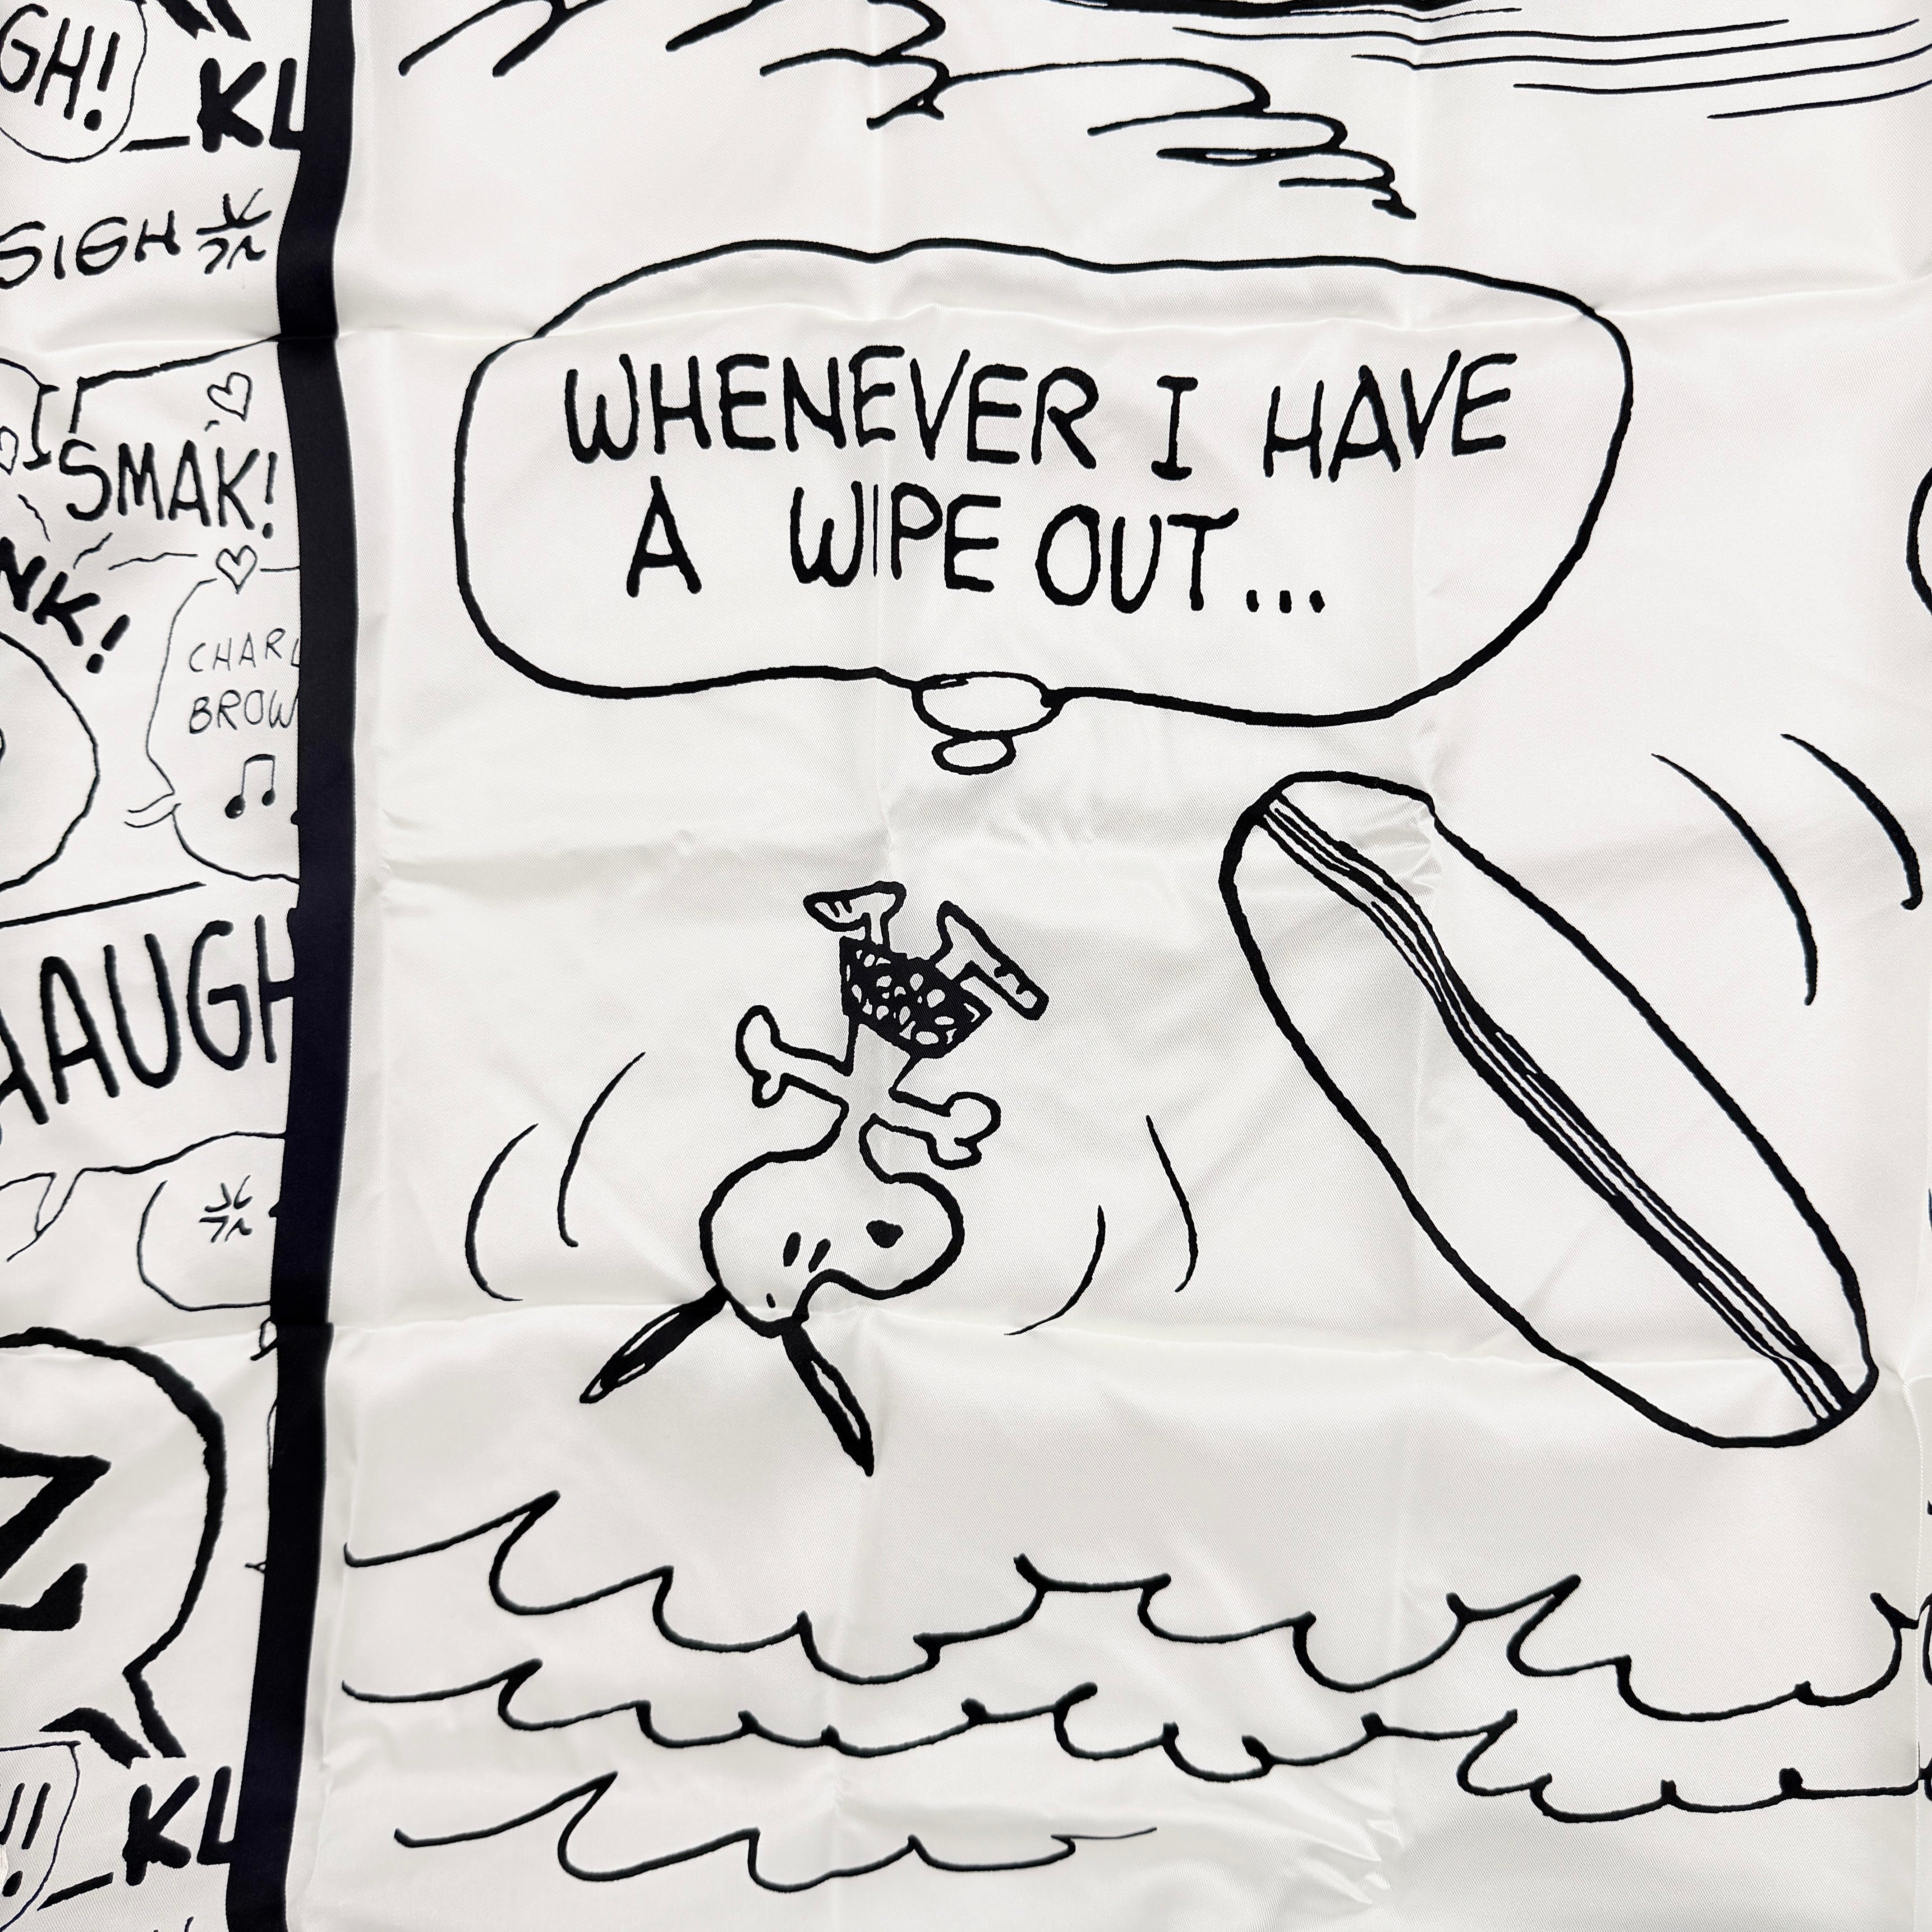 GH!
KL
SIGH
SMAK!
NK!
CHARL
BROW
AAUGH
Z
WHENEVER I HAVE
A WIPE OUT...
!!
KL